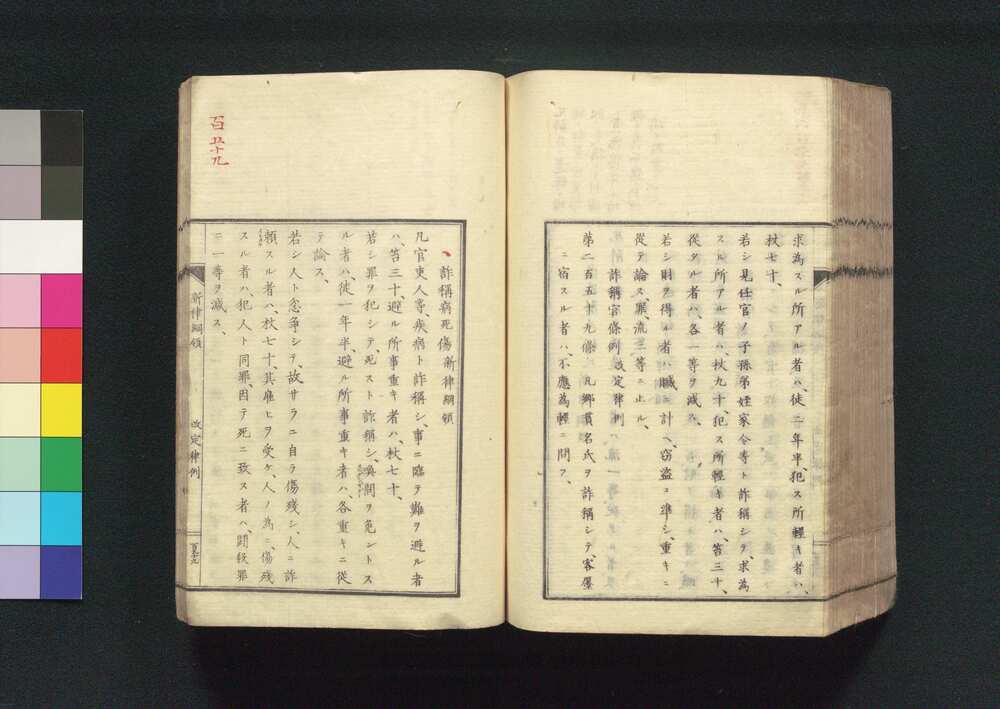 求為スル所アル者ハ、徒二年半、犯ス所輕キ者ハ、
杖七十、
若シ見任官ノ子孫弟姪家令等ト詐稱シテ、求為
スル所アル者ハ、杖九十、犯ス所輕キ者ハ、笞三十、
從タル者ハ、各一等ヲ減ス、
若シ財ヲ得ル者ハ贓ニ計ヘ、窃盗ニ準シ、重キニ
從テ論ス、罪、流三等ニ止ル、
詐稱官條例 改定律例
第二百五十九條 凡鄉貫名氏ヲ詐稱シテ、客店
ニ宿スル者ハ、不應為輕ニ問フ、
百五十九
詐稱病死傷 新律綱領
凡官吏人等、疾病ト詐稱シ、事ニ臨テ難ヲ避ル者
ハ、笞三十、避ル所事重キ者ハ、杖七十、
若シ罪ヲ犯シテ、死スト詐稱シ、問ヲ免ントス
ル者ハ、徒一年半、避ル所事重キ者ハ、各重キニ從
テ論ス、
若シ人ト忿爭シテ、故サラニ自ラ傷殘シ、人ニ詐
頼スル者ハ、杖七十、其雇ヒヲ受ケ、人ノ為ニ、傷殘
スル者ハ、犯人ト同罪、因テ死ニ致ス者ハ、鬪殺罪
ニ一等ヲ減ス、
新律綱領
改定律例
百五十九